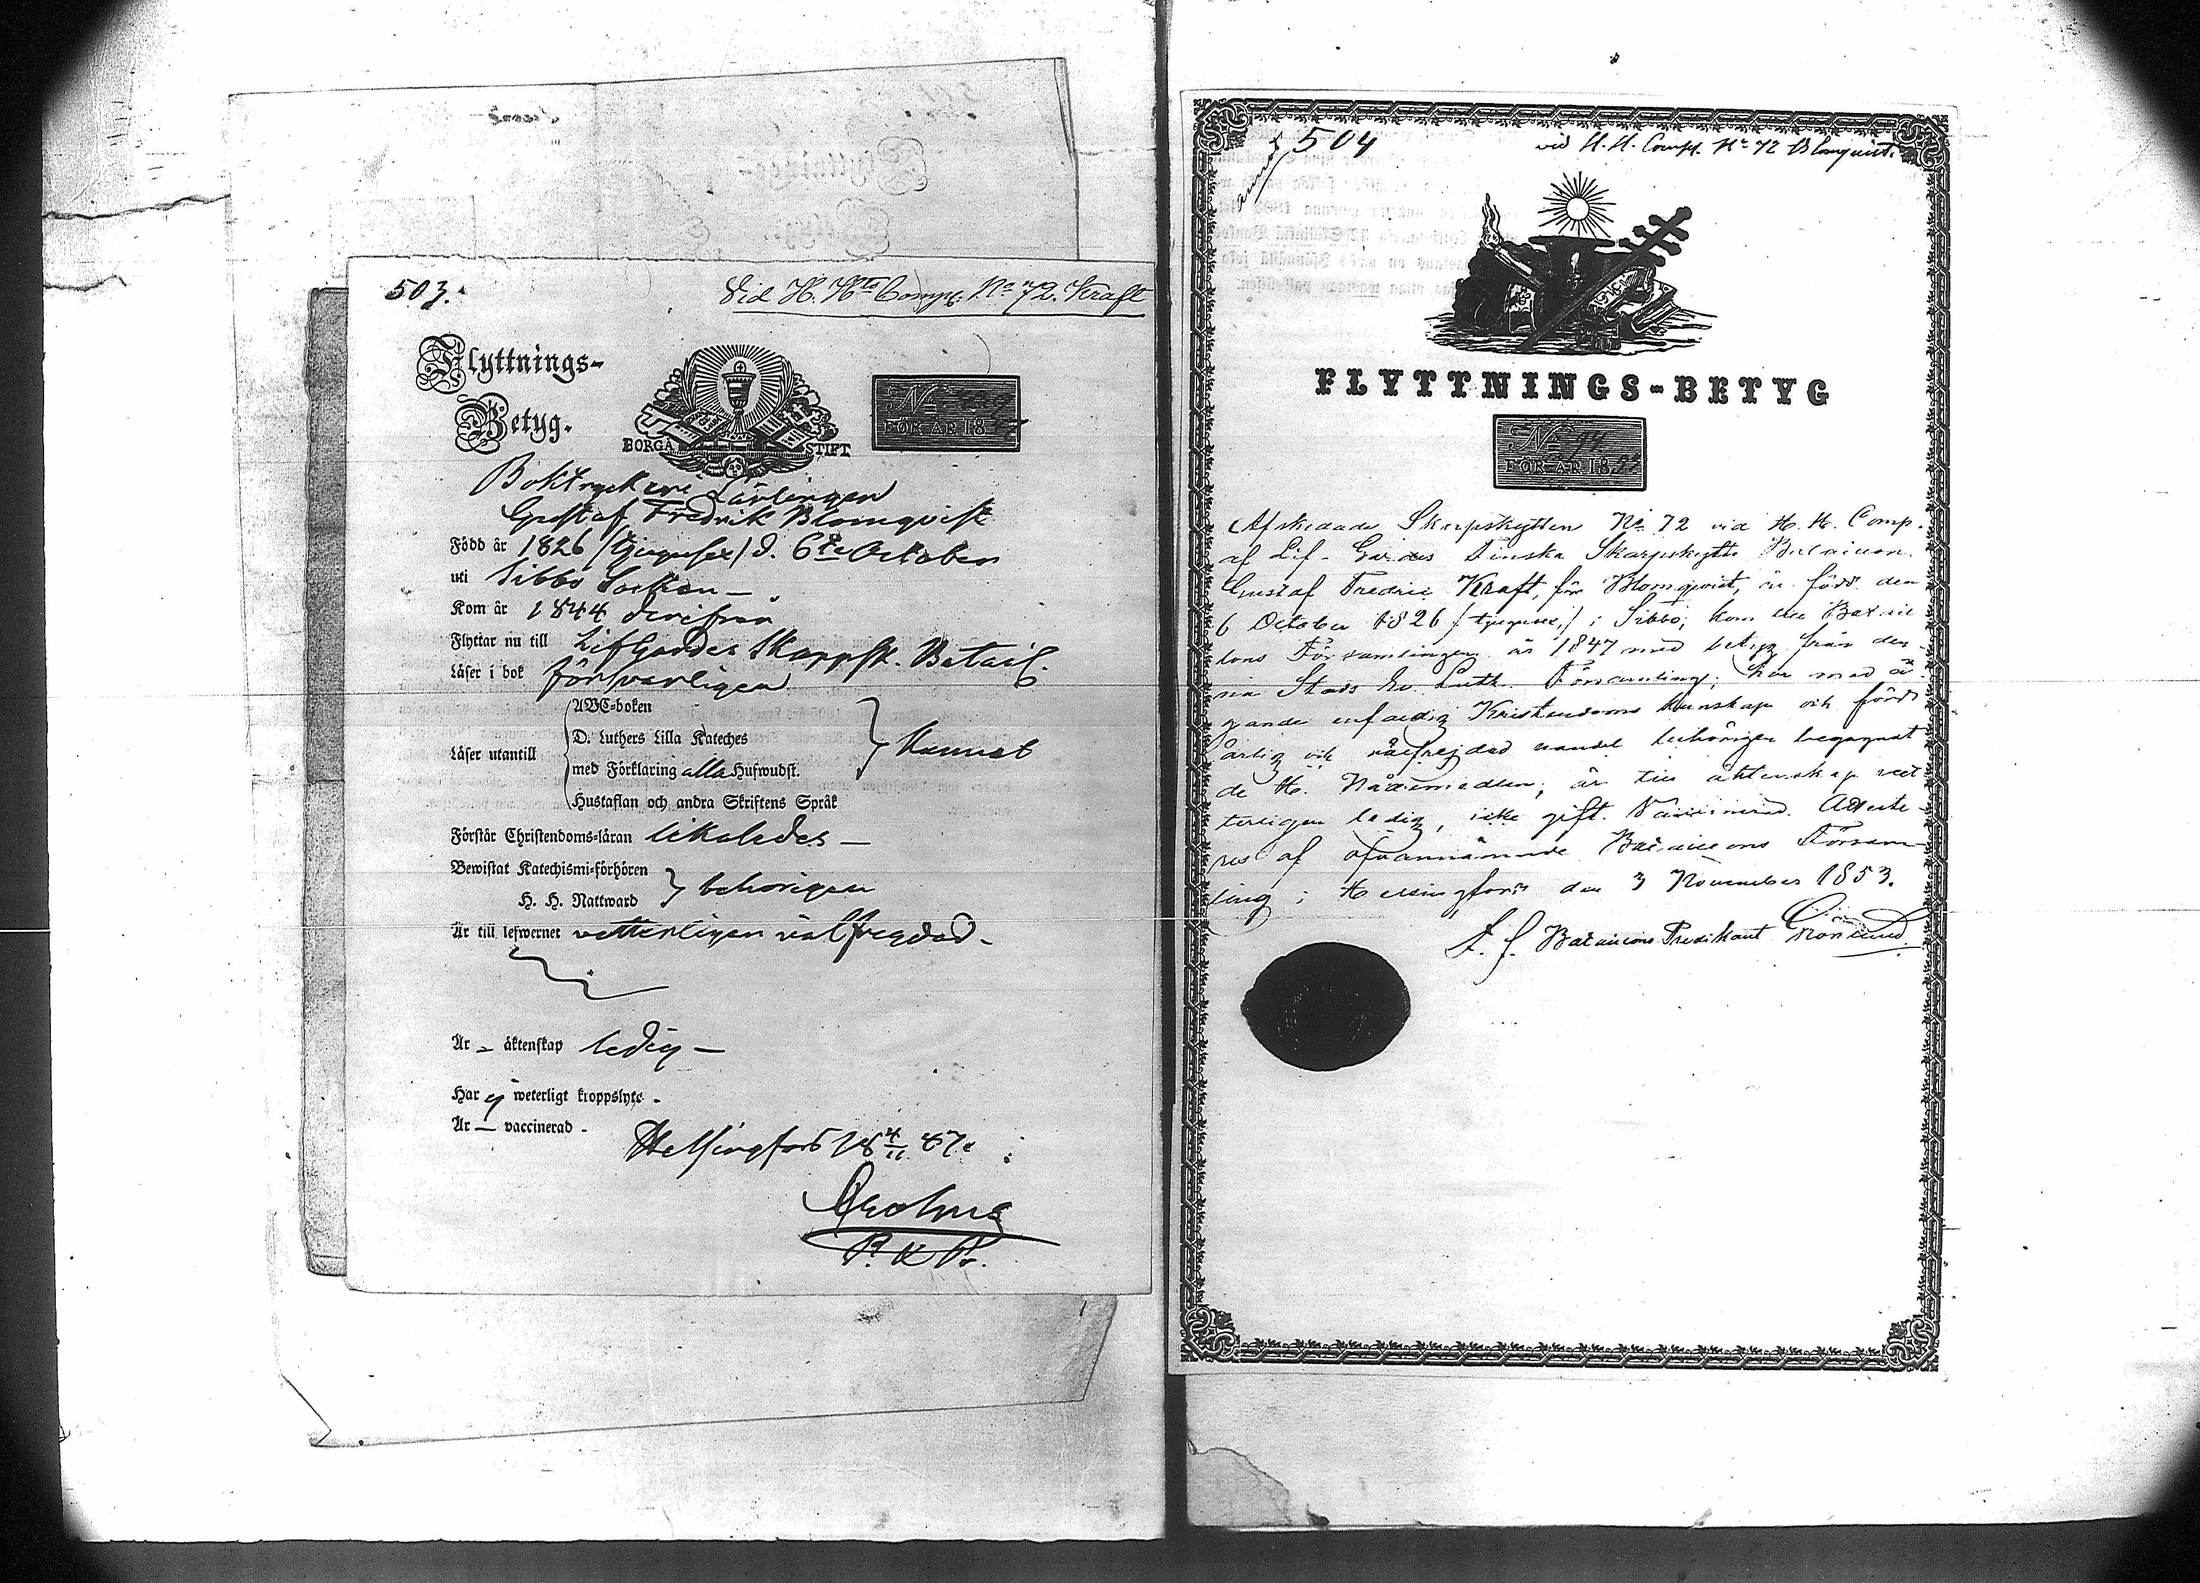 503.
Vid H. Hts Comp. No 72. Kraft
Flyttnings-
Betyg.
BORGÅ STIFT
No
FÖR ÅR 18
Boktryckeri Lärlingen
Gustaf Fredrik Blomqvist
Född år 1826 /tjugusex/ d. 6te October
uti Sibbo Socken —
Kom år 1844 derifrån
Flyttar nu till Lif Gardes Skarpsk. Batail.
Läser i bok försvarligen
Läser utantill
ABC-boken
D. Luthers Lilla Kateches
med Förklaring alla Hufwudst.
Hustaflan och andra Skriftens Språk
kunnat
Förstår Christendoms-läran likaledes —
Bewistat Katechismi-förhören
H. H. Nattward
behörigen
Är till lefwernet vetterligen välfregdad -
Är - äktenskap ledig —
Har ej weterligt kroppslyte -
Är — vaccinerad -
Helsingfors 18 4/11 47.
P. K. P.
504
vid H. H. Comp. No 72 Blomquist.
FLYTTNINGS-BETYG
No
FÖR ÅR 18
Afskedade Skarpskytten No 72 vid H. H. Comp.
af Lif-Gardes Finska Skarpskytte Bataillon
Gustaf Fredric Kraft, för Blomqvist, är född den
6 October 1826 /tjugusex,/ i Sibbo; kom till Batail
lons Församlingen år 1847 med betyg från den
na Stads Ev. Luth. Församling; har med å
gande enfaldig Kristendoms kunskap och förd
ärlig och välfrejdad vandel behörigen begagnat
de H. Nådemedlen; är till äktenskap vet
terligen ledig, icke gift. Vaccinerad. Atteste
res af ofvannämnde Bataillons Försam-
ling i Helsingfors den 3 November 1853.
Bataillons Predikant